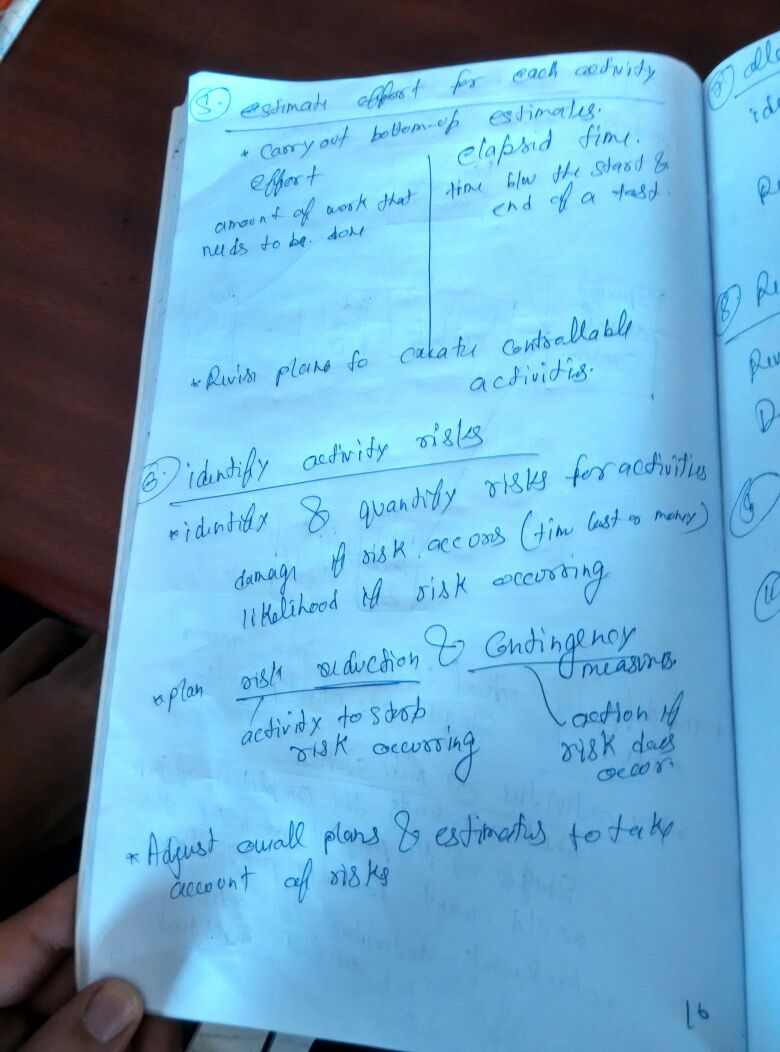 5. estimate effort for each activity
* Carry out bottom-up estimates.
effort
amount of work that
needs to be done
elapsed time.
time b/w the start &
end of a task.
* Revise plans to create controllable
activities.
6. identify activity risks
* identify & quantify risks for activities
damage if risk occors (time lost or money)
likelihood if risk occurring
* plan risk reduction & Contingency
measures
activity to stop
risk occurring
action if
risk does
occor.
* Adjust overall plans & estimates to take
account of risks
16
7. allo
ide
Re
8. Re
Rev
D
9
10